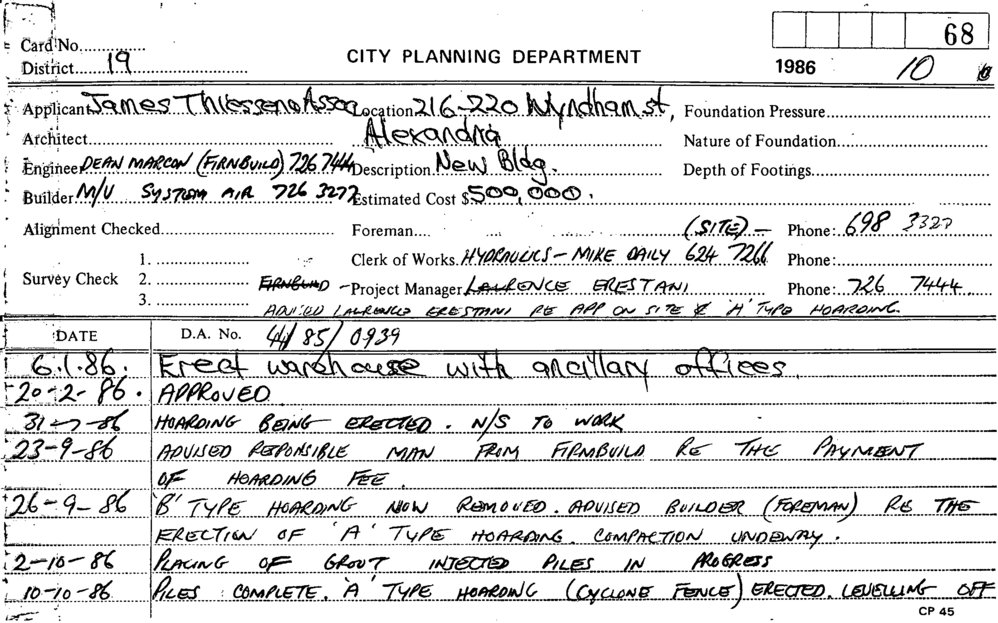 68
Card No.
District 19
CITY PLANNING DEPARTMENT
1986 10
Applicant James Thiessen & Assoc Location 216-220 Wyndham st, Foundation Pressure
Architect Alexandria Nature of Foundation
Engineer DEAN MARCON (FIRNBUILD) 726 7444 Description New Bldg. Depth of Footings
Builder M/V SYSTEM AIR 726 3277 Estimated Cost $500,000.
Alignment Checked Foreman (SITE) - Phone: 698 3327
Clerk of Works HYDRAULICS - MIKE DAILY 624 7266 Phone:
Survey Check 1.
2. FIRNBUILD - Project Manager LAURENCE ERESTANI Phone: 726 7444
3. ADVISED LAURENCE ERESTANI RE APP ON SITE & 'A' TYPE HOARDING.
DATE D.A. No. 44/85/0939
6.1.86. Erect warehouse with ancillary offices.
20-2-86. APPROVED
31-7-86 HOARDING BEING ERECTED. N/S TO WORK
23-9-86 ADVISED REPONSIBLE MAN FROM FIRMBUILD RE THE PAYMENT
OF HOARDING FEE.
26-9-86 'B' TYPE HOARDING NOW REMOVED. ADVISED BUILDER (FOREMAN) RE THE
ERECTION OF 'A' TYPE HOARDING. COMPACTION UNDEWAY.
2-10-86 PLACING OF GROUT INJECTED PILES IN PROGRESS
10-10-86 PILES COMPLETE. 'A' TYPE HOARDING (CYCLONE FENCE) ERECTED. LEVELLING OFF
CP 45